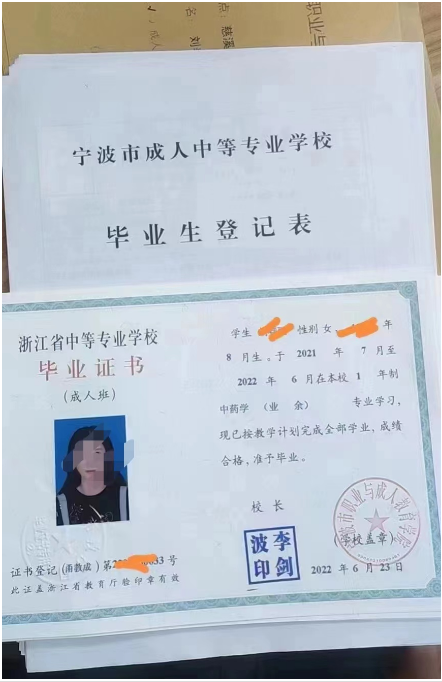 职业与
点：慈溪
名 刘
成人
宁波市成人中等专业学校
毕业生登记表
浙江省中等专业学校
毕业证书
（成人班）
证书登记（甬教成）第 0033 号
此证盖浙江省教育厅验印章有效
学生 性别 女， 年
8 月生。于 2021 年 7 月至
2022 年 6 月在本校 1 年制
中药学（业 余） 专业学习，
现已按教学计划完成全部学业，成绩
合格，准予毕业。
校 长
李剑波印
（学校盖章）
宁波市职业与成人教育学院
2022 年 6 月 23 日